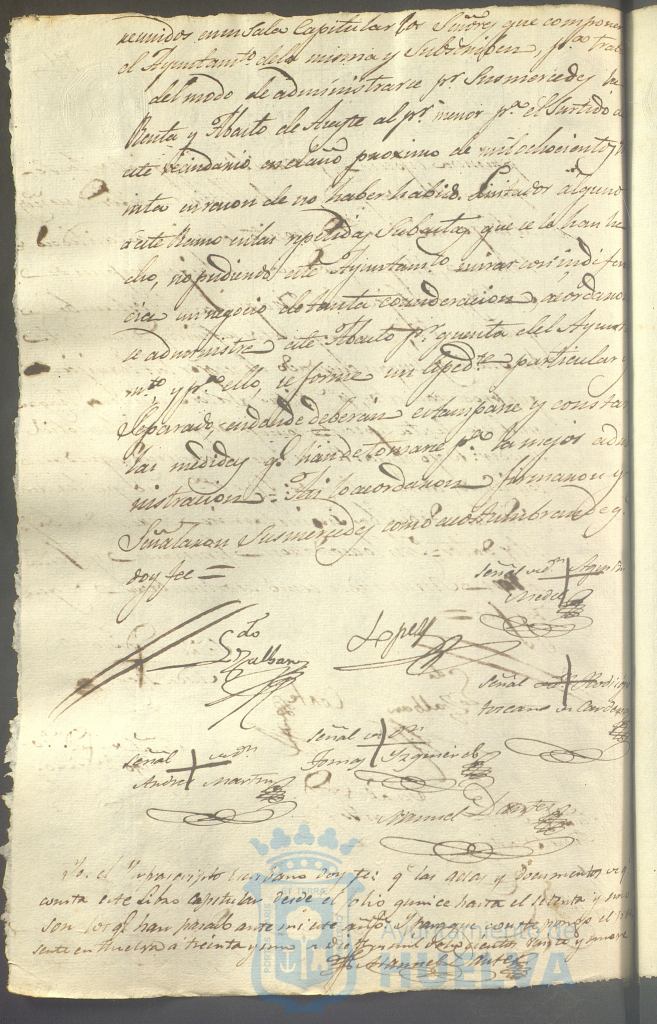 reunidos en su Sala Capitular los Señores que componen
el Ayuntamto. dela misma y Subscriben, pa. tratar
del modo de administrarse pr. Susmercedes la
Renta y Abasto de Aceyte al pr. menor pa. el Surtido de
este vecindario en el año proximo de mil ochocientos
en razon de no haber habido Licitador alguno
a este Ramo en las repetidas Subastas que se le han he
cho, no pudiendo este Ayuntamto. mirar con indiferen
cia un negocio de tanta consideracion, acordaron
se administre este Abasto pr. quenta del Ayunta
mto. y pa. ello, se forme un Expedte. particular y
Separado, en donde deberán estamparse y constar
las medidas qe. han de tomarse pa. la mejor admi
nistracion = Asi lo acordaron, firmaron y
Señalaron Susmercedes como acostumbran de q
doy fee =
Señal de Dn. Agustin
Ldo. Lopez
Señal de Rodrigo
Toscano de Cardenas
Señal de Dn. Señal de Dn.
Andres Martin Tomas Izquierdo
Manuel
Yo el Ynfrascripto Escribano doy fee: qe. las actas y documentos de q
consta este Libro Capitular desde el folio quince hasta el setenta y
son los qe. han pasado ante mi este año. Y para que conste pongo el pre
sente en Huelva a treinta y uno de Diz.re mil setecientos
Manuel
Ayuntamiento de
HUELVA